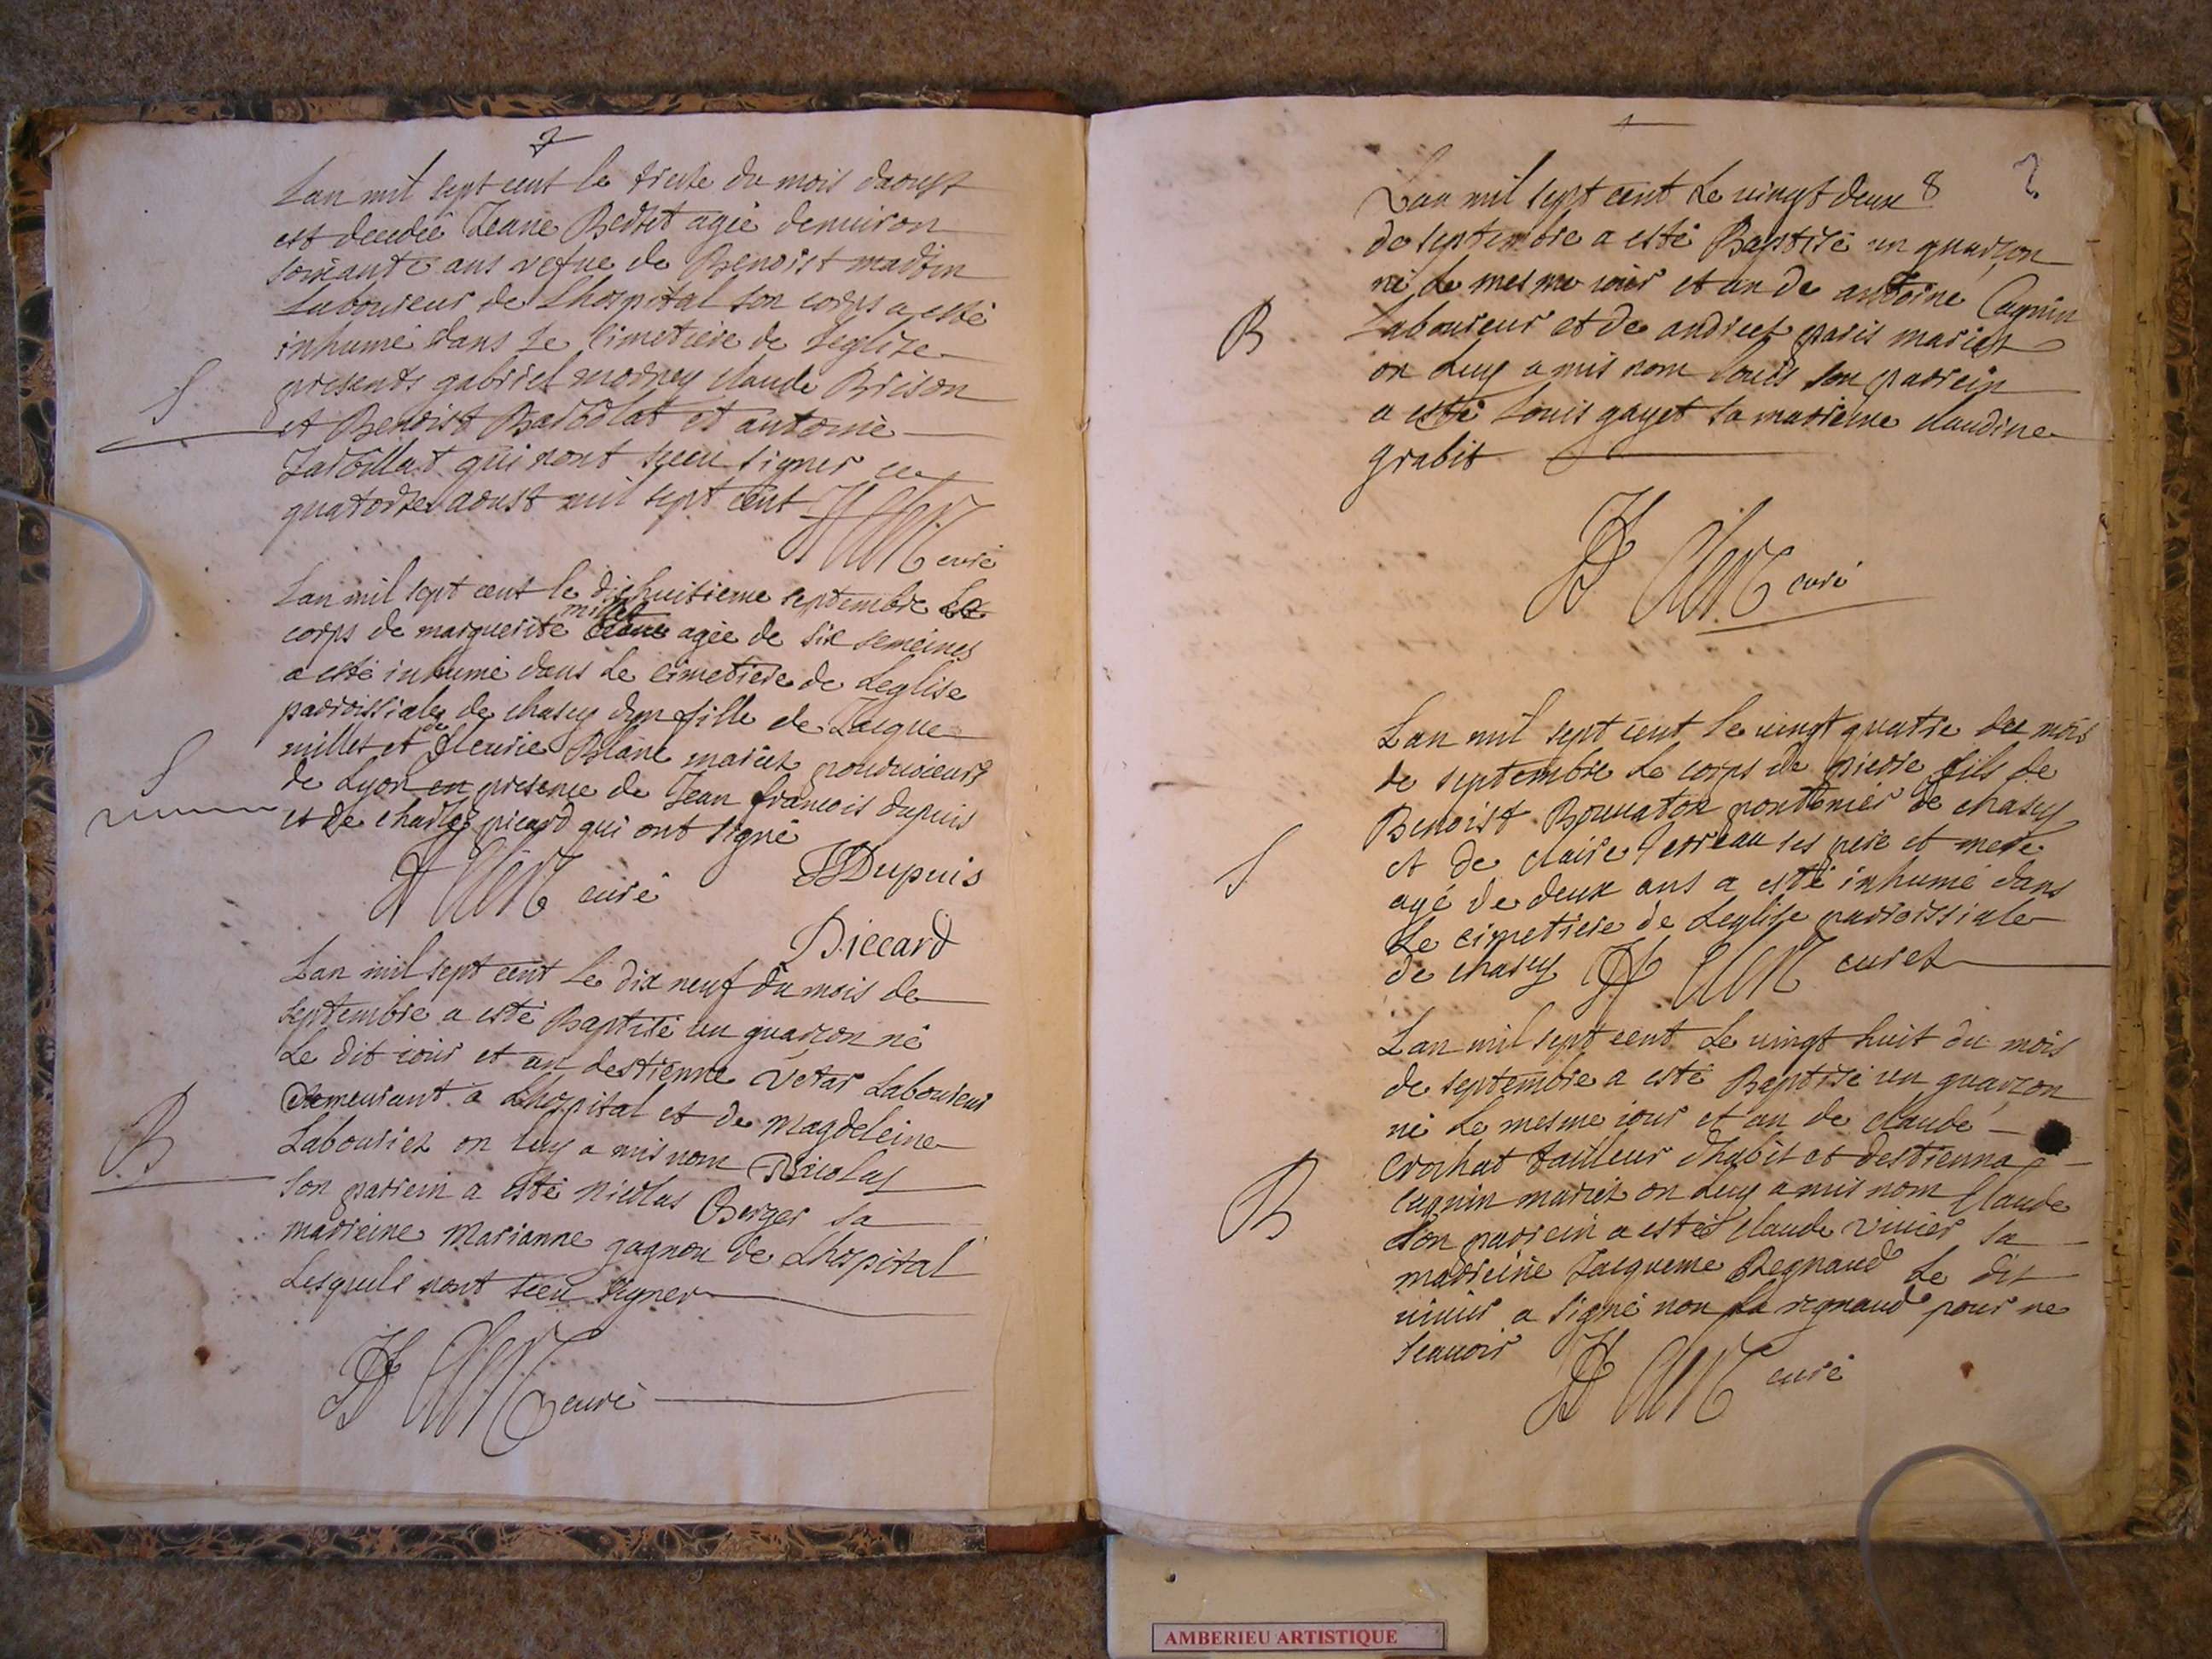 7
Lan mil sept cent le trente du mois daoust
est decedée Jeane agée denuiron
soixante ans vefue de Benoist
Laboureur de Lhospital son corps a esté
inhumé dans le cimetiere de leglise
presents gabriel claude Brison
S
et Benoist et antoine
qui nont sceu signer ce
quatorze aoust mil sept cent
curé
Lan mil sept cent le dixhuitieme septembre Le
millet
corps de marguerite agée de six semeines
a esté inhumé dans Le cimetiere de Leglise
parroissiale de chasey fille de Jacque
millet et de fleurie Blanc mariez
S
de Lyon en presence de Jean francois dupuis
et de charles picard qui ont signé
curé JFDupuis
Piccard
Lan mil sept cent Le dix neuf du mois de
septembre a esté Baptisé un guarcon né
Le dit iour et an destienne Vetar Laboureur
demeurant a Lhospital et de Magdeleine
B
Labouriez on luy a mis nom Nicolas
son parrein a esté nicolas Berger sa
marreine Marianne gagnon de Lhospital
Lesquels nont sceu signer
curé
1
2
Lan mil sept cent Le vingt deux 8
de septembre a esté Baptisé un guarçon
né Le mesme iour et an de antoine Cagnin
B
Laboureur et de andriete paris mariez
on Luy a mis nom Louis son parrein
a esté Louis gayet sa marreine claudine
grabit
curé
Lan mil sept cent le vingt quatre du mois
de septembre Le corps de pierre fils de
Benoist pontenier de chasey
S
et de claire Terreau ses pere et mere
agé de deux ans a esté inhumé dans
Le cimetiere de Leglise parroissiale
de chasey curez
Lan mil sept cent Le vingt huit du mois
de septembre a esté Baptisé un guarcon
né Le mesme iour et an de claude
crochat tailleur dhabit et destienna
B
cagnin mariez on Luy a mis nom Claude
son parrein a esté Claude vivier sa
marreine Jacqueme Regnaud Le dit
vivier a signé non La regnaud pour ne
scauoir
curé
AMBERIEU ARTISTIQUE